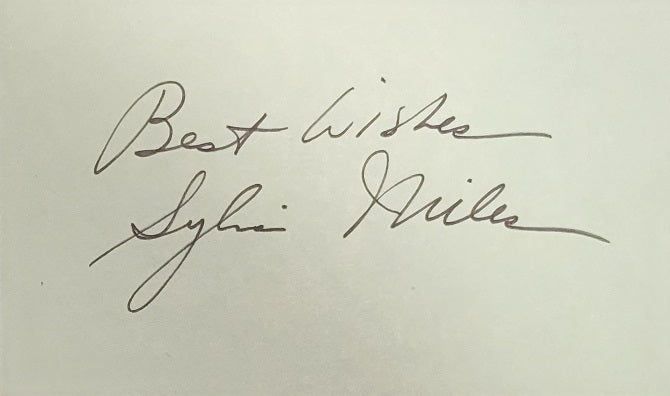 Best Wishes
Sylvia Miles